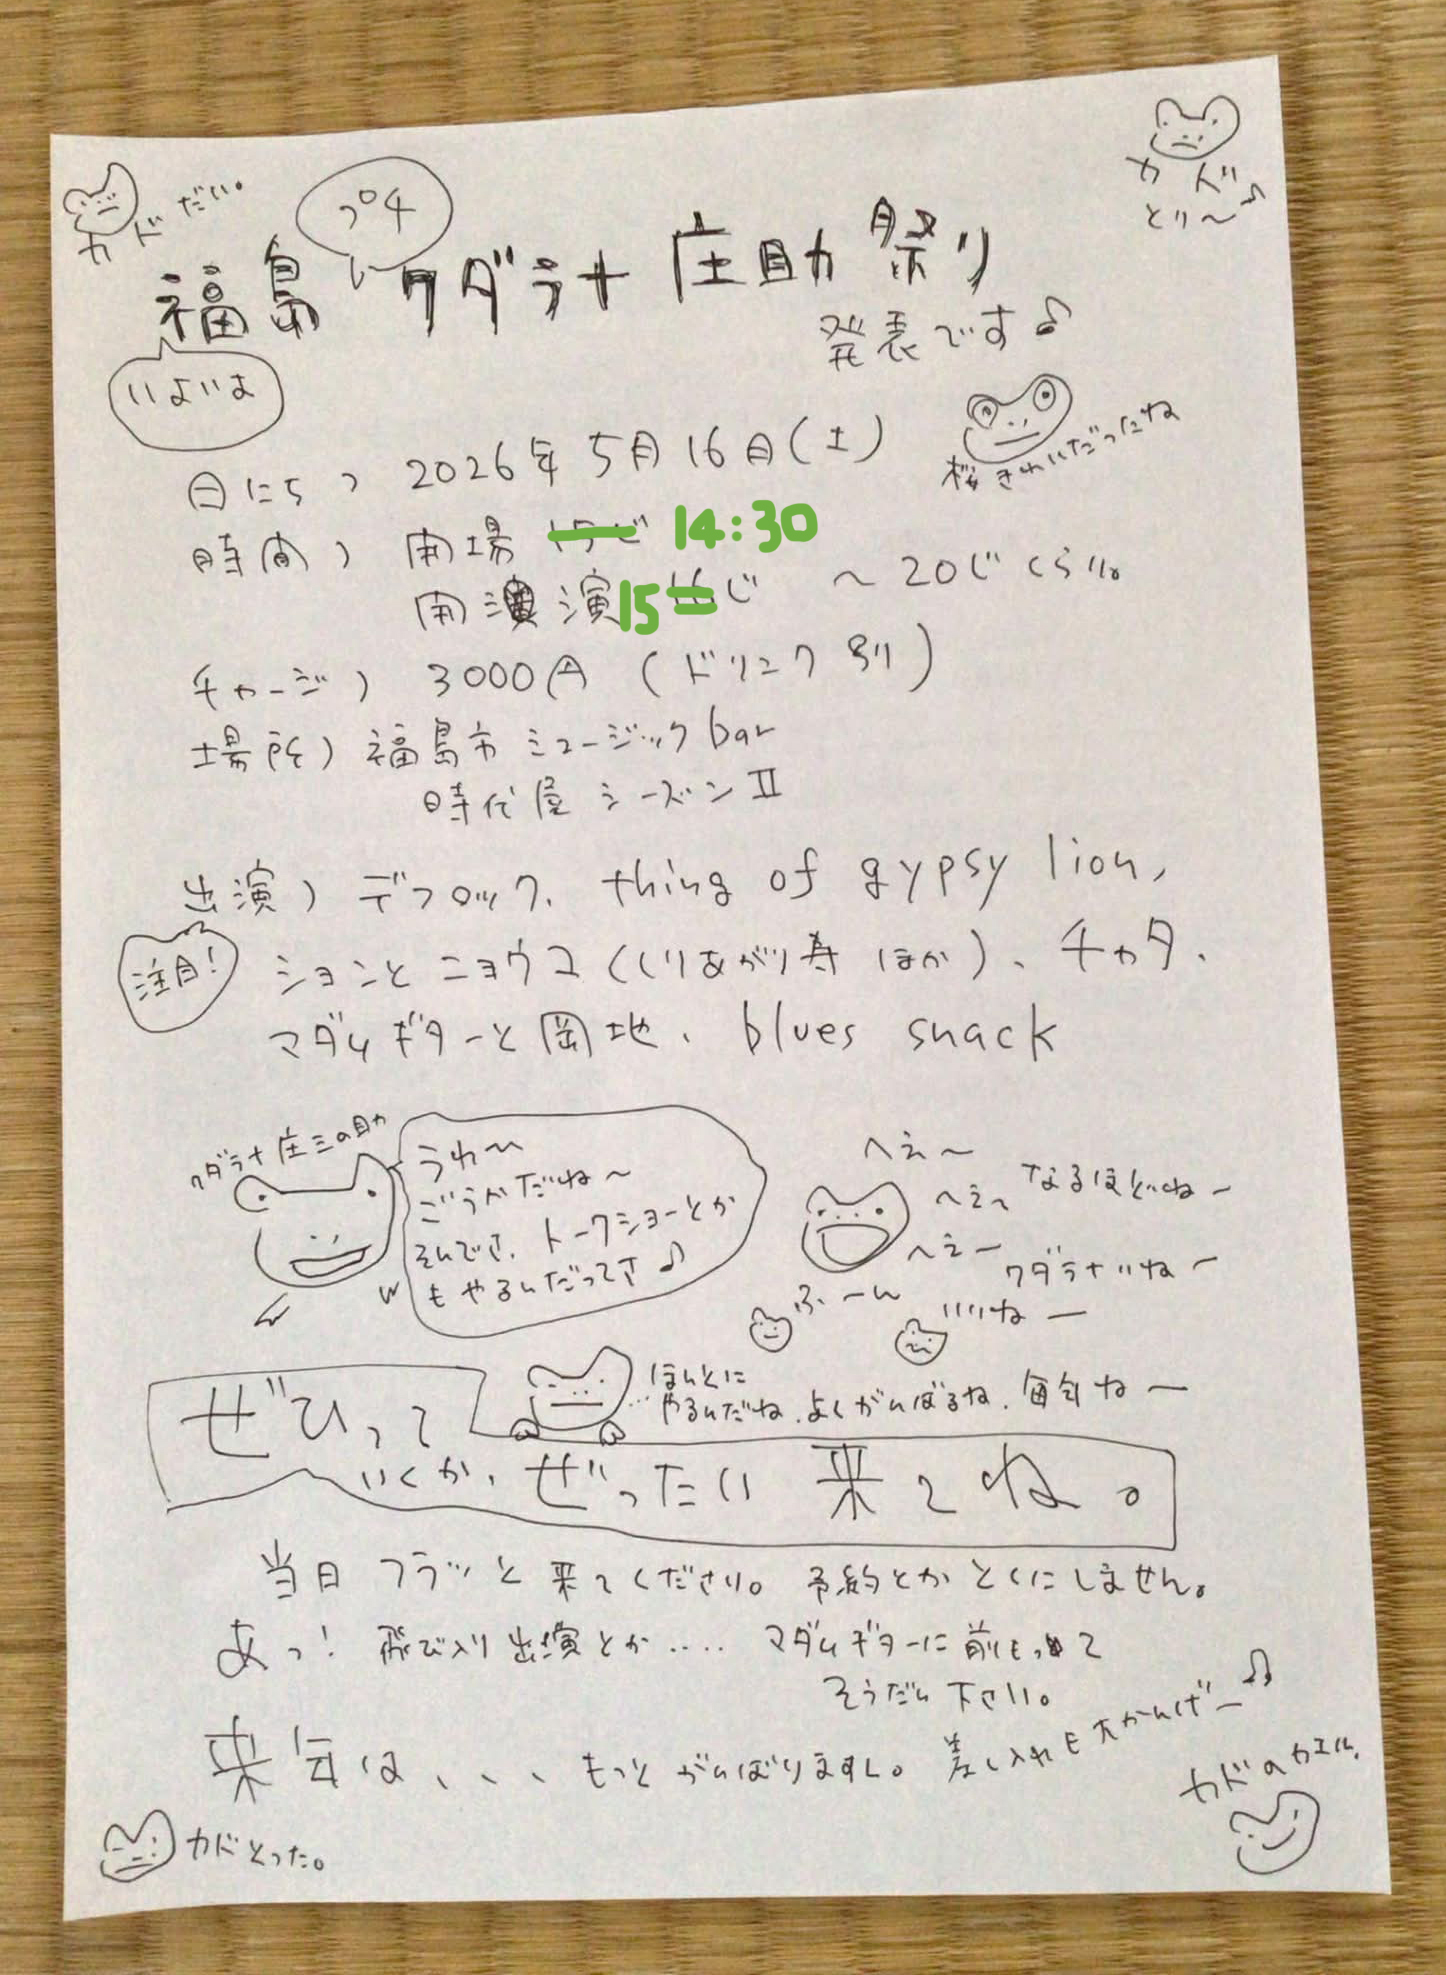 カドだい。
カド
とり〜♪
プチ
福島 クダラナ庄助祭り
発表です♪
いよいよ
桜きれいだったね
日にち) 2026年5月16日(土)
時間) 開場 15じ 14:30
開演 15 16じ 〜20じくらい。
チャージ) 3000円 (ドリンク別)
場所) 福島市ミュージックbar
時代屋シーズンⅡ
出演) デフロック、thing of gypsy lion,
注目!
ションとニョウコ(しりあがり寿ほか)、チャタ、
マダムギターと岡地、blues snack
クダラナ庄三の助
うわ〜
ごうかだね〜
そんでさ、トークショーとか
もやるんだってさ♪
へえ〜
へえ〜 なるほどね〜
へえー クダラナいね〜
ふーん
いいねー
ほんとに
やるんだね、よくがんばるね、毎年ねー
ぜひって
いくか、ぜったい来てね。
当日フラッと来てください。予約とかとくにしません。
あっ!飛び入り出演とか‥‥マダムギターに前もって
そうだん下さい。
来年は、、、もっとがんばりますし。差し入れも大かんげー♪
カドとった。
カドのカエル。